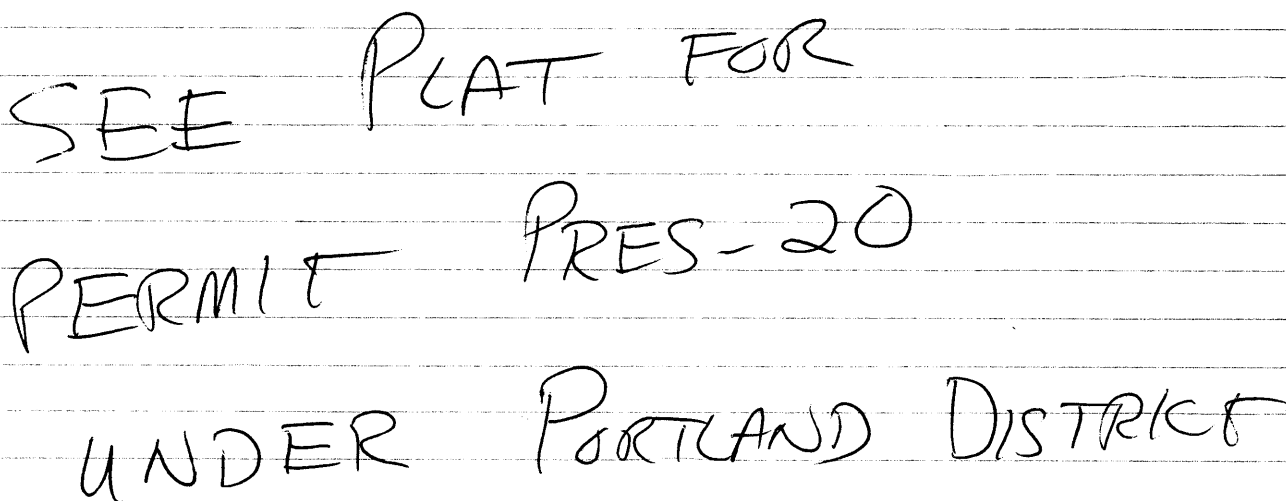 SEE PLAT FOR
PERMIT PRES-20
UNDER PORTLAND DISTRICT